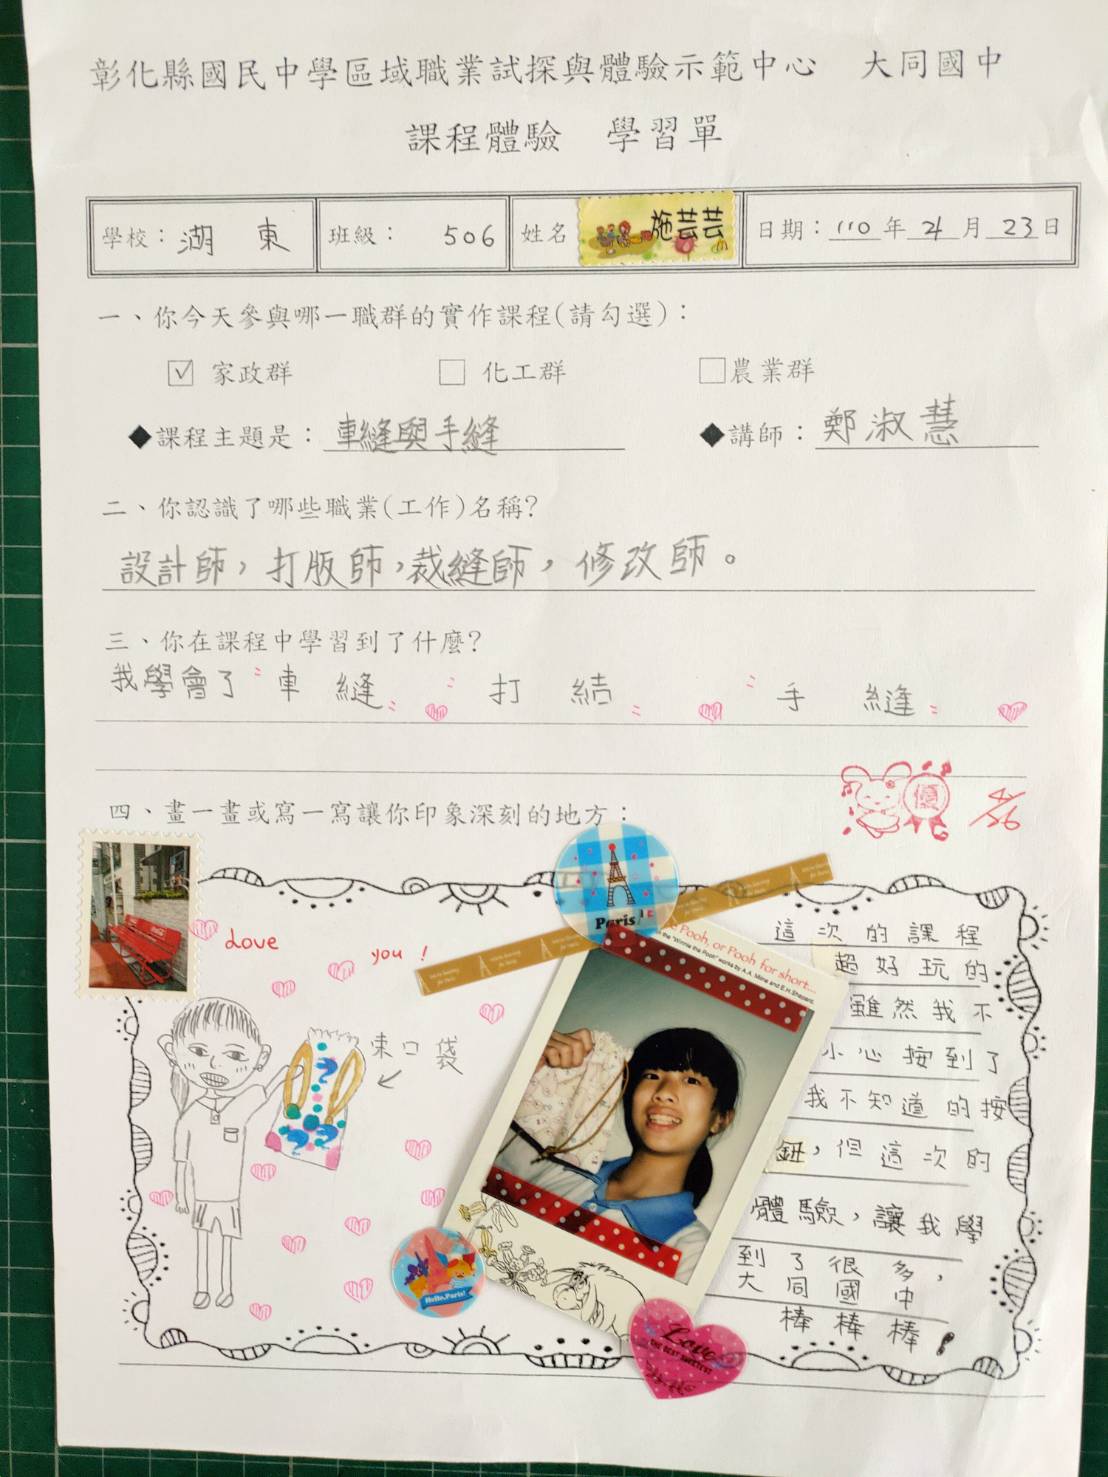 彰化縣國民中學區域職業試探與體驗示範中心 大同國中
課程體驗 學習單
學校：湖東 班級：506 姓名 施芸芸 日期：110年4月23日
一、你今天參與哪一職群的實作課程(請勾選)：
☑ 家政群 □ 化工群 □農業群
◆課程主題是：車縫與手縫 ◆講師：鄭淑慧
二、你認識了哪些職業(工作)名稱?
設計師，打版師，裁縫師，修改師。
三、你在課程中學習到了什麼?
我學會了"車縫" "打結" "手縫"
四、畫一畫或寫一寫讓你印象深刻的地方：
優 4/26
Love you!
束口袋
Paris!
Pooh, or Pooh for short...
Hello, Paris!
Love
這次的課程
超好玩的
雖然我不
小心按到了
我不知道的按
鈕，但這次的
體驗，讓我學
到了很多，
大同國中
棒棒棒！